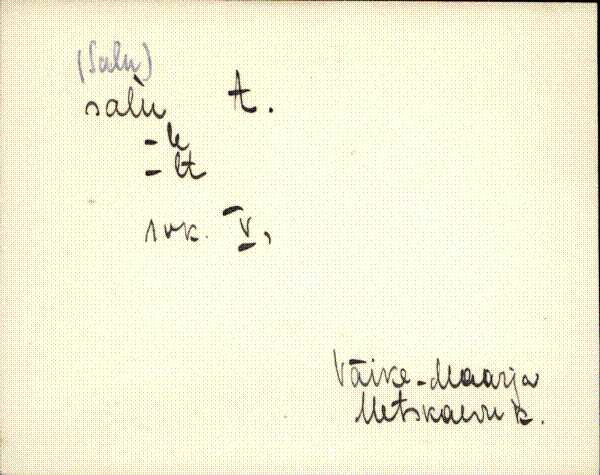 (Salu)
salù t.
-le
-lt
srk. V,
Väike-Maarja
Metskaevu k.